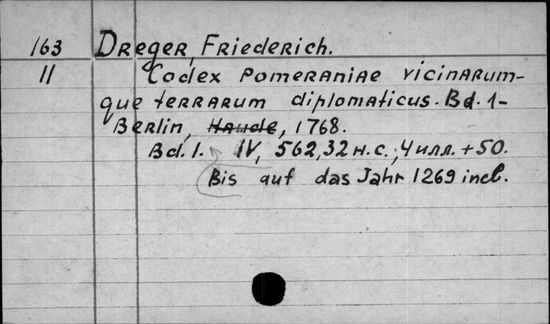 163 Dreger, Friederich.
11 Codex Pomeraniae vicinarum-
que terrarum diplomaticus. Bd. 1-
Berlin, Haude, 1768.
Bd. 1. IV, 562, 32 н.с.; 4 илл. + 50.
Bis auf das Jahr 1269 incl.